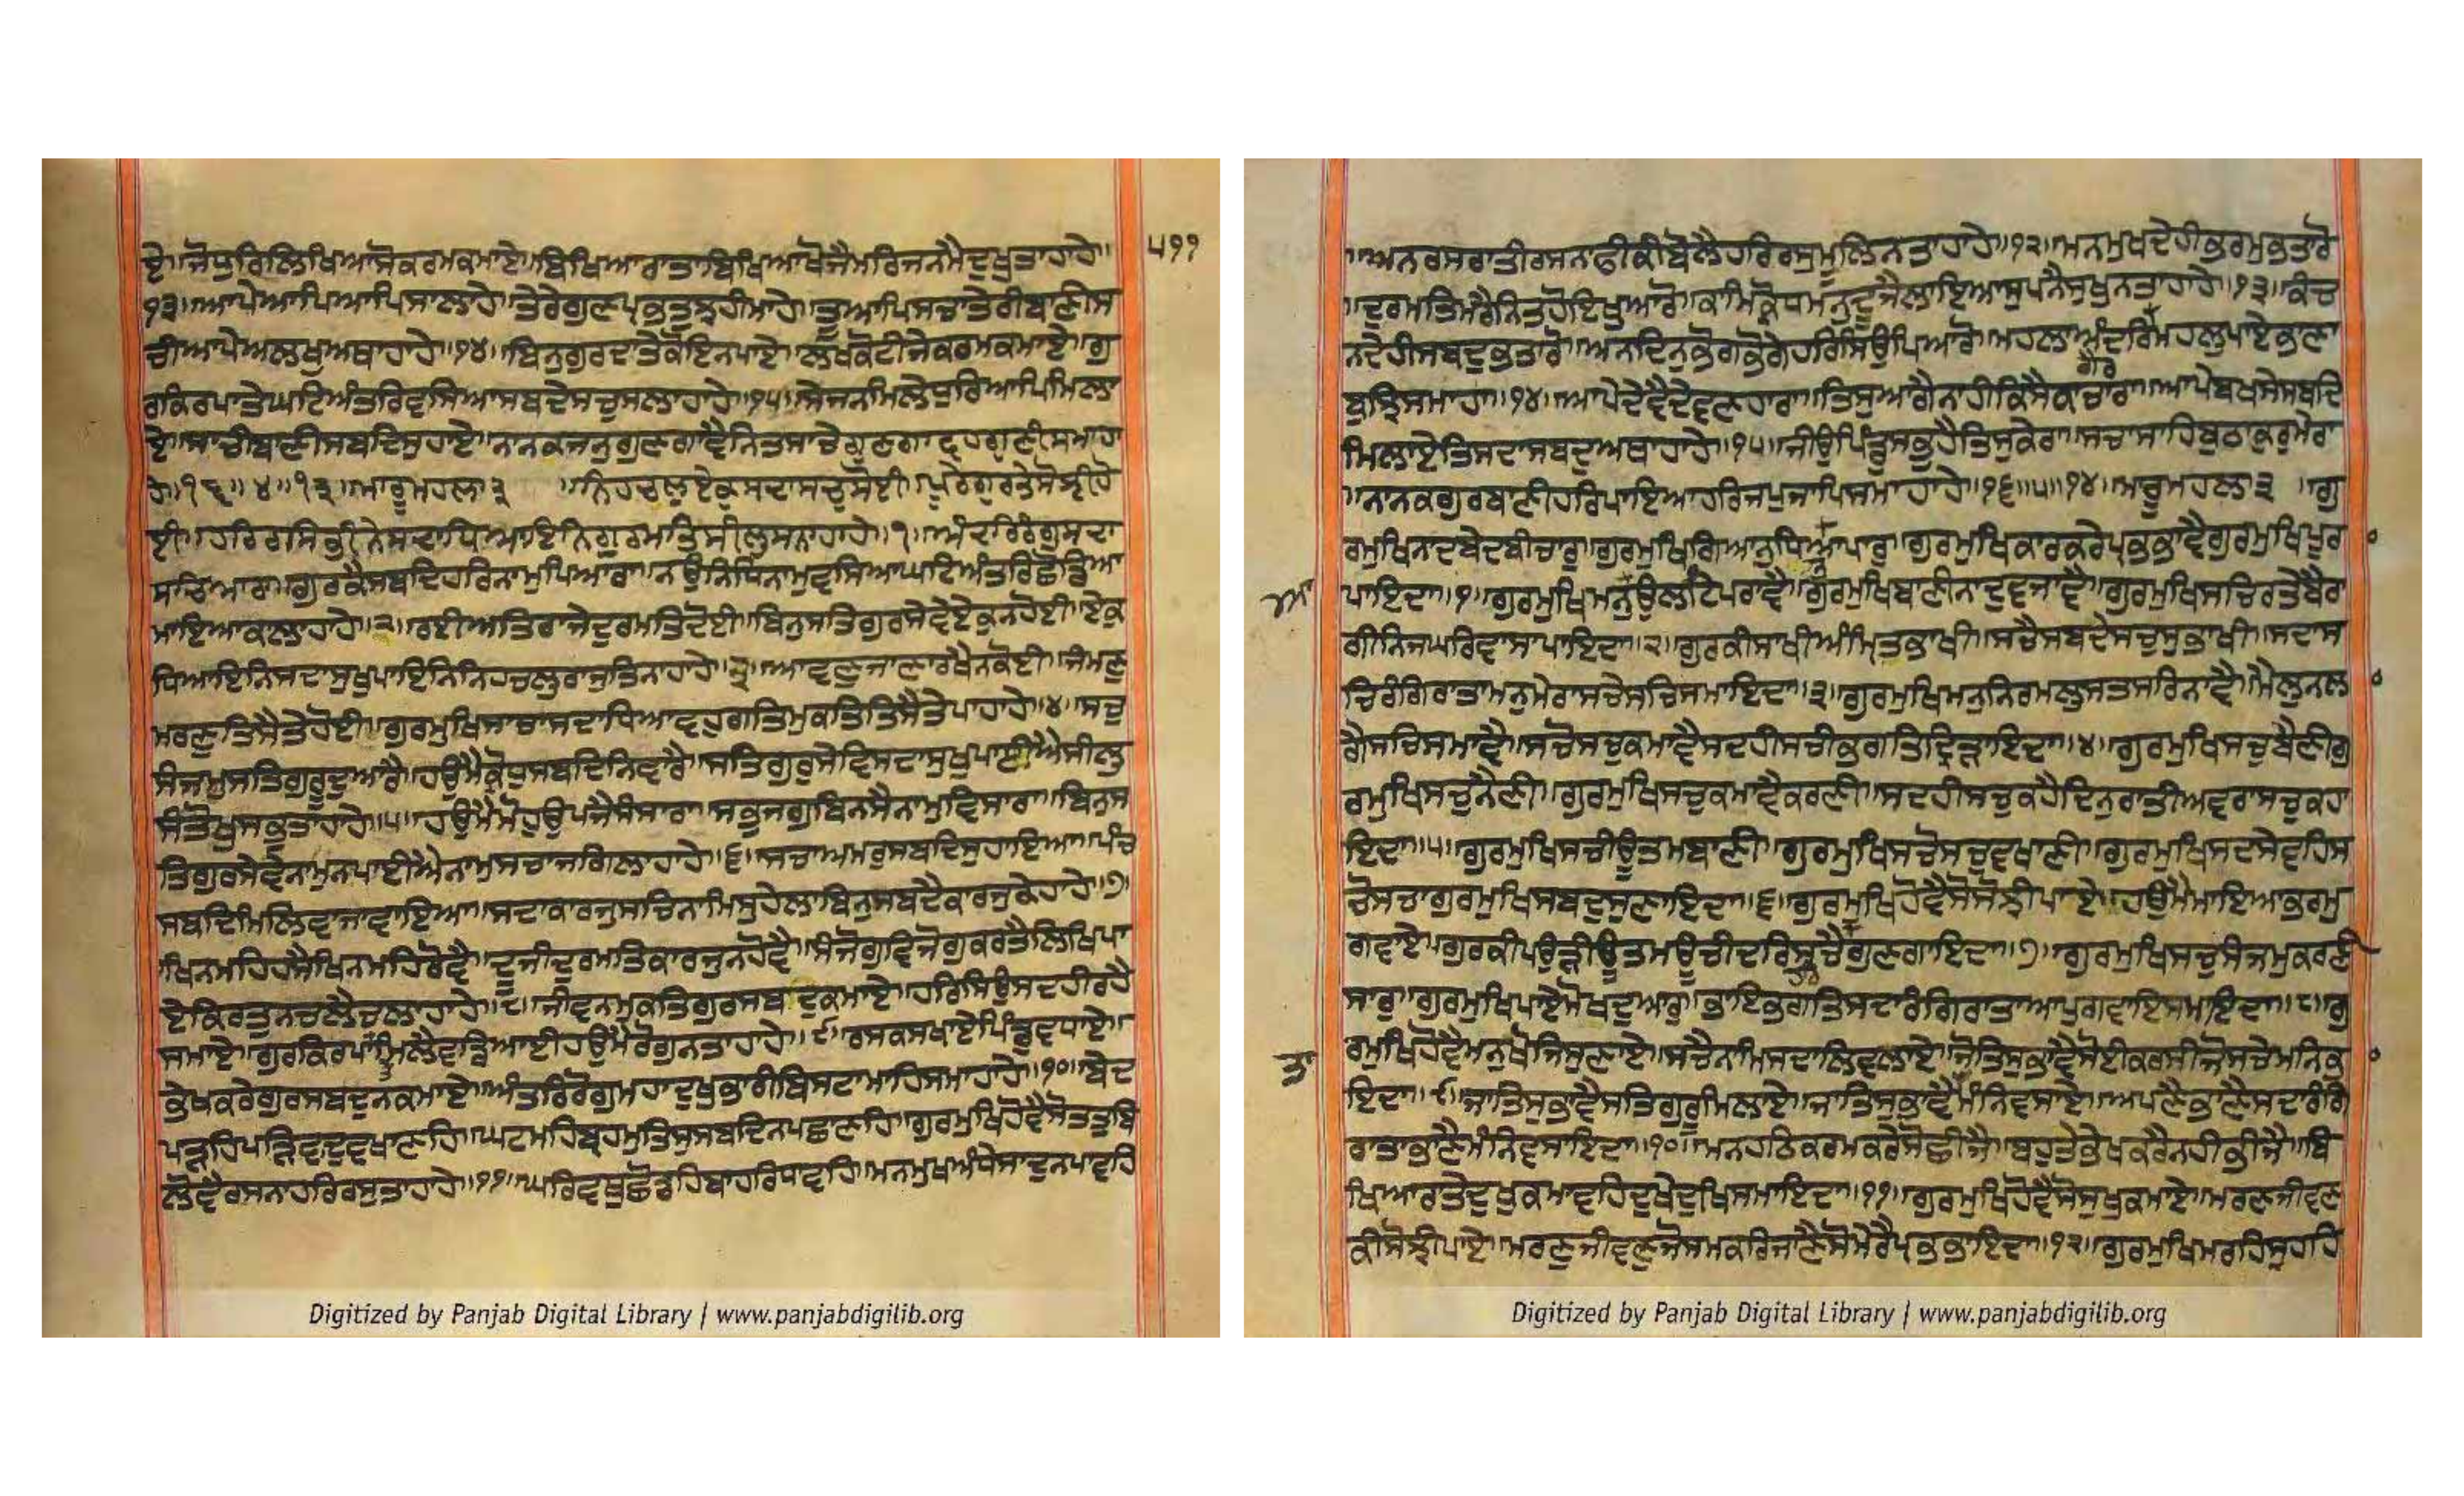 ਏ॥ਜੋਧੁਰਿਲਿਖਿਆਸੋਕਰਮਕਮਾਏ॥ਬਿਖਿਆਰਾਤਾਬਿਖਿਆਖੋਜੈਮਰਿਜਨਮੈਦੁਖੁਤਾਹਾਹੇ॥
੫੧੧
੧੩॥ਆਪੇਆਪਿਆਪਿਸਾਲਾਹੇ॥ਤੇਰੇਗੁਣਪ੍ਰਭਤੁਝਹੀਮਾਹੇ॥ਤੂਆਪਿਸਚਾਤੇਰੀਬਾਣੀਸ
ਚੀਆਪੇਅਲਖੁਅਥਾਹਾਹੇ॥੧੪॥ਬਿਨੁਗੁਰਦਾਤੇਕੋਇਨਪਾਏ॥ਲਖਕੋਟੀਜੇਕਰਮਕਮਾਏ॥ਗੁ
ਰਕਿਰਪਾਤੇਘਟਿਅੰਤਰਿਵਸਿਆਸਬਦੇਸਚੁਸਲਾਹਾਹੇ॥੧੫॥ਸੇਜਨਮਿਲੇਧੁਰਿਆਪਿਮਿਲਾ
ਏ॥ਸਾਚੀਬਾਣੀਸਬਦਿਸੁਹਾਏ॥ਨਾਨਕਜਨੁਗੁਣਗਾਵੈਨਿਤਸਾਚੇਗੁਣਗਾਵਹਗੁਣੀਸਮਾਹਾ
ਹੇ॥੧੬॥੪॥੧੩॥ਮਾਰੂਮਹਲਾ੩ ॥ਨਿਹਚਲੁਏਕੁਸਦਾਸਚੁਸੋਈ॥ਪੂਰੇਗੁਰਤੇਸੋਝੀਹੋ
ਈ॥ਹਰਿਰਸਿਭੀਨੇਸਦਾਧਿਆਇਨਿਗੁਰਮਤਿਸੀਲੁਸੰਨਾਹਾਹੇ॥੧॥ਅੰਦਰਿਰੰਗੁਸਦਾ
ਸਚਿਆਰਾ॥ਗੁਰਕੈਸਬਦਿਹਰਿਨਾਮੁਪਿਆਰਾ॥ਨਉਨਿਧਿਨਾਮੁਵਸਿਆਘਟਿਅੰਤਰਿਛੋਡਿਆ
ਮਾਇਆਕਾਲਾਹਾਹੇ॥੨॥ਰਈਅਤਿਰਾਜੇਦੁਰਮਤਿਦੋਈ॥ਬਿਨੁਸਤਿਗੁਰਸੇਵੇਏਕੁਨਹੋਈ॥ਏਕੁ
ਧਿਆਇਨਿਸਦਾਸੁਖੁਪਾਇਨਿਨਿਹਚਲੁਰਾਜੁਤਿਨਾਹਾਹੇ॥੩॥ਆਵਣੁਜਾਣਾਰਖੈਨਕੋਈ॥ਜੰਮਣੁ
ਮਰਣੁਤਿਸੈਤੇਹੋਈ॥ਗੁਰਮੁਖਿਸਾਚਾਸਦਾਧਿਆਵਹੁਗਤਿਮੁਕਤਿਤਿਸੈਤੇਪਾਹਾਹੇ॥੪॥ਸਚੁ
ਸੰਜਮੁਸਤਿਗੁਰੂਦੁਆਰੈ॥ਹਉਮੈਕ੍ਰੋਧੁਸਬਦਿਨਿਵਾਰੈ॥ਸਤਿਗੁਰੁਸੇਵਿਸਦਾਸੁਖੁਪਾਈਐਸੀਲੁ
ਸੰਤੋਖੁਸਭੁਤਾਹਾਹੇ॥੫॥ਹਉਮੈਮੋਹੁਉਪਜੈਸੰਸਾਰਾ॥ਸਭੁਜਗੁਬਿਨਸੈਨਾਮੁਵਿਸਾਰਾ॥ਬਿਨੁਸ
ਤਿਗੁਰਸੇਵੇਨਾਮੁਨਪਾਈਐਨਾਮੁਸਚਾਜਗਿਲਾਹਾਹੇ॥੬॥ਸਚਾਅਮਰੁਸਬਦਿਸੁਹਾਇਆ॥ਪੰਚ
ਸਬਦਿਮਿਲਿਵਾਜਾਵਾਇਆ॥ਸਦਾਕਾਰਜੁਸਚਿਨਾਮਿਸੁਹੇਲਾਬਿਨੁਸਬਦੈਕਾਰਜੁਕੇਹਾਹੇ॥੭॥
ਖਿਨਮਹਿਹਸੈਖਿਨਮਹਿਰੋਵੈ॥ਦੂਜੀਦੁਰਮਤਿਕਾਰਜੁਨਹੋਵੈ॥ਸੰਜੋਗੁਵਿਜੋਗੁਕਰਤੈਲਿਖਿਪਾ
ਏਕਿਰਤੁਨਚਲੈਚਲਾਹਾਹੇ॥੮॥ਜੀਵਨਮੁਕਤਿਗੁਰਸਬਦੁਕਮਾਏ॥ਹਰਿਸਿਉਸਦਹੀਰਹੈ
ਸਮਾਏ॥ਗੁਰਕਿਰਪਾਮਿਲੈਵਡਿਆਈਹਉਮੈਰੋਗੁਨਤਾਹਾਹੇ॥੯॥ਰਸਕਸਖਾਏਪਿੰਡੁਵਧਾਏ॥
ਭੇਖਕਰੇਗੁਰਸਬਦੁਨਕਮਾਏ॥ਅੰਤਰਿਰੋਗੁਮਹਾਦੁਖੁਭਾਰੀਬਿਸਟਾਮਾਹਿਸਮਾਹਾਹੇ॥੧੦॥ਬੇਦ
ਪੜਹਿਪੜਿਵਾਦੁਵਖਾਣਹਿ॥ਘਟਮਹਿਬ੍ਰਹਮੁਤਿਸੁਸਬਦਿਨਪਛਾਣਹਿ॥ਗੁਰਮੁਖਿਹੋਵੈਸੋਤਤੁਬਿ
ਲੋਵੈਰਸਨਾਹਰਿਰਸੁਤਾਹਾਹੇ॥੧੧॥ਘਰਿਵਥੁਛੋਡਹਿਬਾਹਰਿਧਾਵਹਿ॥ਮਨਮੁਖਅੰਧੇਸਾਦੁਨਪਾਵਹਿ
॥ਅਨਰਸਰਾਤੀਰਸਨਾਫੀਕੀਬੋਲੈਹਰਿਰਸੁਮੂਲਿਨਤਾਹਾਹੇ॥੧੨॥ਮਨਮੁਖਦੇਹੀਭਰਮੁਭਤਾਰੋ
॥ਦੁਰਮਤਿਮਰੈਨਿਤਹੋਇਖੁਆਰੋ॥ਕਾਮਿਕ੍ਰੋਧਿਮਨੁਦੂਜੈਲਾਇਆਸੁਪਨੈਸੁਖੁਨਤਾਹਾਹੇ॥੧੩॥ਕੰਚ
ਨਦੇਹੀਸਬਦੁਭਤਾਰੋ॥ਅਨਦਿਨੁਭੋਗਭੋਗੇਹਰਿਸਿਉਪਿਆਰੋ॥ਮਹਲਾਅੰਦਰਿਮਹਲੁਪਾਏਭਾਣਾ
ਬੁਝਿਸਮਾਹਾ॥੧੪॥ਆਪੇਦੇਵੈਦੇਵਣਹਾਰਾ॥ਤਿਸੁਆਗੈਨਾਹੀਕਿਸੈਕਾਚਾਰਾ॥ਆਪੇਬਖਸੇਸਬਦਿ
ਮਿਲਾਏਤਿਸਦਾਸਬਦੁਅਥਾਹਾਹੇ॥੧੫॥ਜੀਉਪਿੰਡੁਸਭੁਹੈਤਿਸੁਕੇਰਾ॥ਸਚਾਸਾਹਿਬੁਠਾਕੁਰੁਮੇਰਾ
॥ਨਾਨਕਗੁਰਬਾਣੀਹਰਿਪਾਇਆਹਰਿਜਪੁਜਾਪਿਸਮਾਹਾਹੇ॥੧੬॥੫॥੧੪॥ਮਾਰੂਮਹਲਾ੩ ॥ਗੁ
ਰਮੁਖਿਨਾਦਬੇਦਬੀਚਾਰੁ॥ਗੁਰਮੁਖਿਗਿਆਨੁਧਿਆਪਾਰੁ॥ਗੁਰਮੁਖਿਕਾਰਕਰੇਪ੍ਰਭਭਾਵੈਗੁਰਮੁਖਿਪੂਰਾ
ਪਾਇਦਾ॥੧॥ਗੁਰਮੁਖਿਮਨੁਉਲਟਿਪਰਾਵੈ॥ਗੁਰਮੁਖਿਬਾਣੀਨਾਦੁਵਜਾਵੈ॥ਗੁਰਮੁਖਿਸਚਿਰਤੇਬੈਰਾ
ਗੀਨਿਜਘਰਿਵਾਸਾਪਾਇਦਾ॥੨॥ਗੁਰਕੀਸਾਖੀਅੰਮ੍ਰਿਤਭਾਖੀ॥ਸਚੈਸਬਦੇਸਚੁਸੁਭਾਖੀ॥ਸਦਾਸ
ਚਿਰੰਗਿਰਾਤਾਮਨੁਮੇਰਾਸਚੇਸਚਿਸਮਾਇਦਾ॥੩॥ਗੁਰਮੁਖਿਮਨੁਨਿਰਮਲੁਸਤਸਰਿਨਾਵੈ॥ਮੈਲੁਨਲਾ
ਗੈਸਚਿਸਮਾਵੈ॥ਸਚੋਸਚੁਕਮਾਵੈਸਦਹੀਸਚੀਭਗਤਿਦ੍ਰਿੜਾਇਦਾ॥੪॥ਗੁਰਮੁਖਿਸਚੁਬੈਣੀਗੁ
ਰਮੁਖਿਸਚੁਨੈਣੀ॥ਗੁਰਮੁਖਿਸਚੁਕਮਾਵੈਕਰਣੀ॥ਸਦਹੀਸਚੁਕਹੈਦਿਨੁਰਾਤੀਅਵਰਾਸਚੁਕਹਾ
ਇਦਾ॥੫॥ਗੁਰਮੁਖਿਸਚੀਊਤਮਬਾਣੀ॥ਗੁਰਮੁਖਿਸਚੋਸਚੁਵਖਾਣੀ॥ਗੁਰਮੁਖਿਸਦਸੇਵਹਿਸ
ਚੋਸਚਾਗੁਰਮੁਖਿਸਬਦੁਸੁਣਾਇਦਾ॥੬॥ਗੁਰਮੁਖਿਹੋਵੈਸੋਸੋਝੀਪਾਏ॥ਹਉਮੈਮਾਇਆਭਰਮੁ
ਗਵਾਏ॥ਗੁਰਕੀਪਉੜੀਊਤਮਊਚੀਦਰਿਸਚੈਗੁਣਗਾਇਦਾ॥੭॥ਗੁਰਮੁਖਿਸਚੁਸੰਜਮੁਕਰਣੀ
ਸਾਰੁ॥ਗੁਰਮੁਖਿਪਾਏਮੋਖਦੁਆਰੁ॥ਭਾਇਭਗਤਿਸਦਾਰੰਗਿਰਾਤਾਆਪੁਗਵਾਇਸਮਾਇਦਾ॥੮॥ਗੁ
ਰਮੁਖਿਹੋਵੈਮਨੁਖੋਜਿਸੁਣਾਏ॥ਸਚੈਨਾਮਿਸਦਾਲਿਵਲਾਏ॥ਜੋਤਿਸੁਭਾਵੈਸੋਈਕਰਸੀਜੋਸਚੇਮਨਿਭਾ
ਇਦਾ॥੯॥ਜਾਤਿਸੁਭਾਵੈਸਤਿਗੁਰੂਮਿਲਾਏ॥ਜਾਤਿਸੁਭਾਵੈਮੰਨਿਵਸਾਏ॥ਅਪਣੈਭਾਣੈਸਦਾਰੰਗਿ
ਰਾਤਾਭਾਣੈਮੰਨਿਵਸਾਇਦਾ॥੧੦॥ਮਨਹਠਿਕਰਮਕਰੇਸੋਛੀਜੈ॥ਬਹੁਤੇਭੇਖਕਰੈਨਹੀਭੀਜੈ॥ਬਿ
ਖਿਆਰਾਤੇਦੁਖੁਕਮਾਵਹਿਦੁਖੇਦੁਖਿਸਮਾਇਦਾ॥੧੧॥ਗੁਰਮੁਖਿਹੋਵੈਸੋਸੁਖੁਕਮਾਏ॥ਮਰਣਜੀਵਣ
ਕੀਸੋਝੀਪਾਏ॥ਮਰਣੁਜੀਵਣੁਜੋਸਮਕਰਿਜਾਣੈਸੋਮੇਰੈਪ੍ਰਭਭਾਇਦਾ॥੧੨॥ਗੁਰਮੁਖਿਮਰਹਿਸੁਹਹਿ
Digitized by Panjab Digital Library | www.panjabdigilib.org
Digitized by Panjab Digital Library | www.panjabdigilib.org